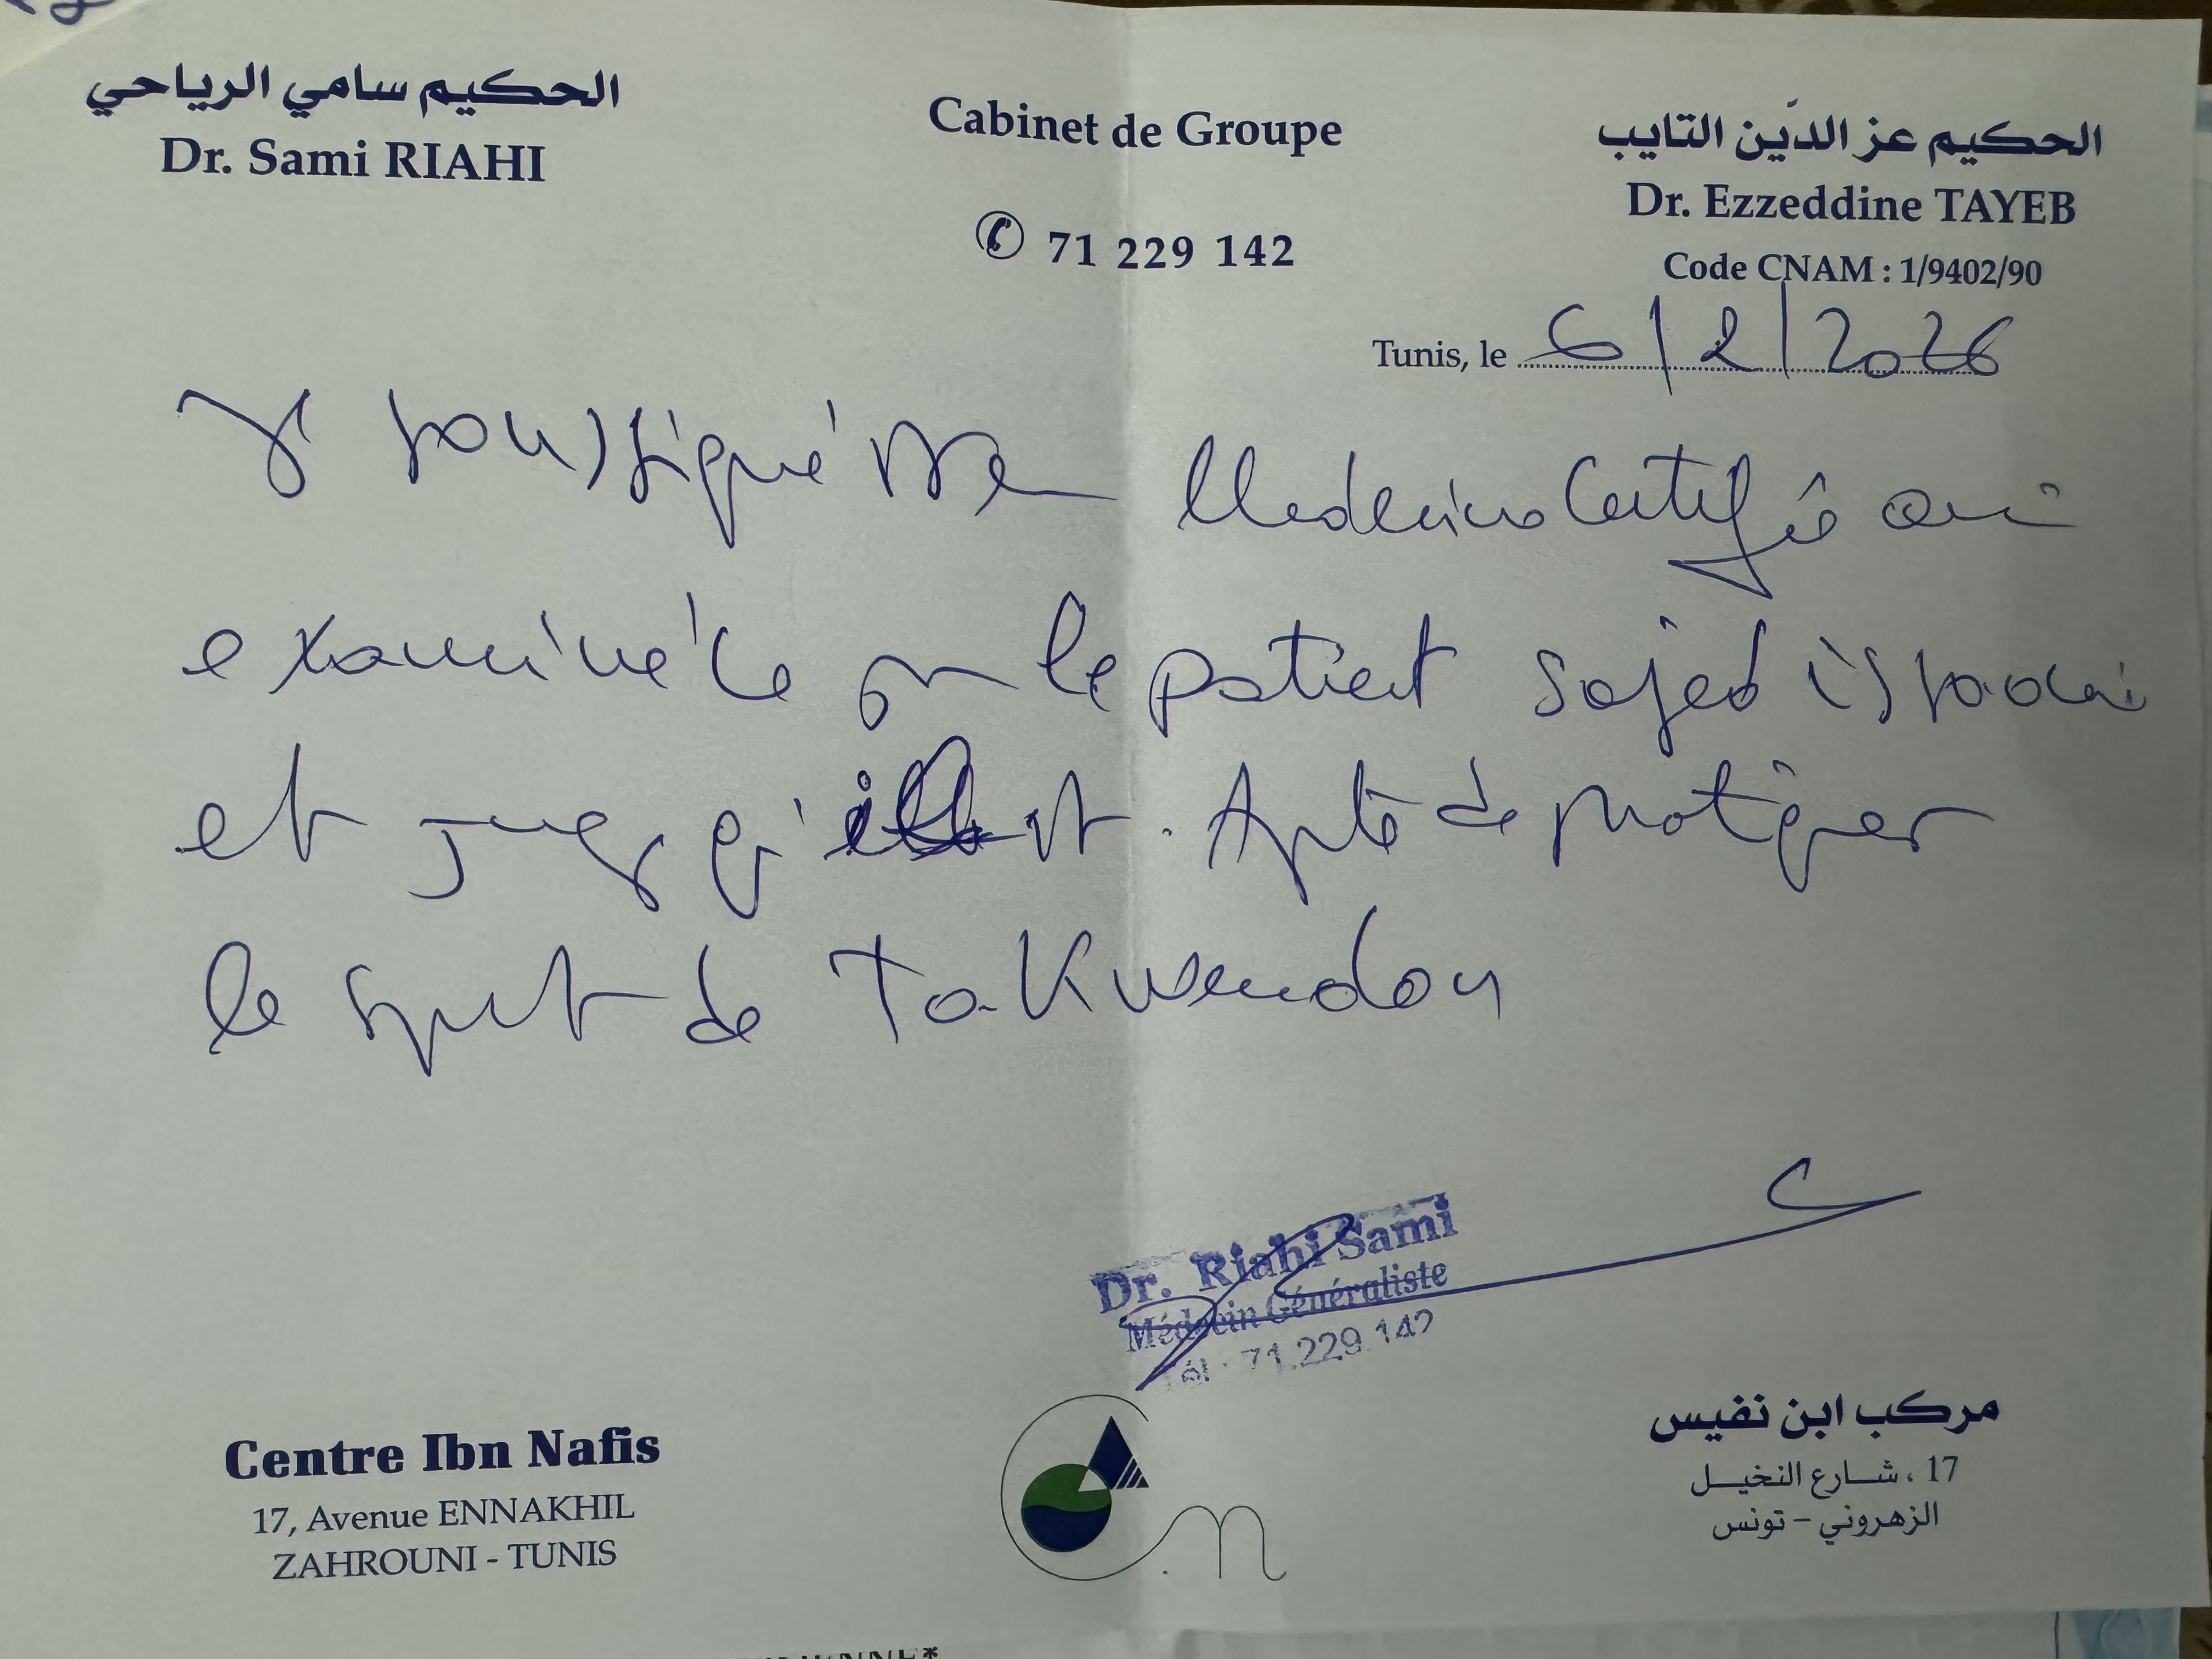 الحكيم سامي الرياحي
Dr. Sami RIAHI
Cabinet de Groupe
✆ 71 229 142
الحكيم عز الدّين التايب
Dr. Ezzeddine TAYEB
Code CNAM : 1/9402/90
Tunis, le 6/2/2026
Je soussigné Médecin Certifie avoir
examiné ce jour le patient Sajed
et juge qu'il est. Apte de pratiquer
le sport de Takwendou
Dr. Riahi Sami
Médecin Généraliste
Tél : 71.229.142
Centre Ibn Nafis
17, Avenue ENNAKHIL
ZAHROUNI - TUNIS
مركب ابن نفيس
17 ، شارع النخيل
الزهروني - تونس